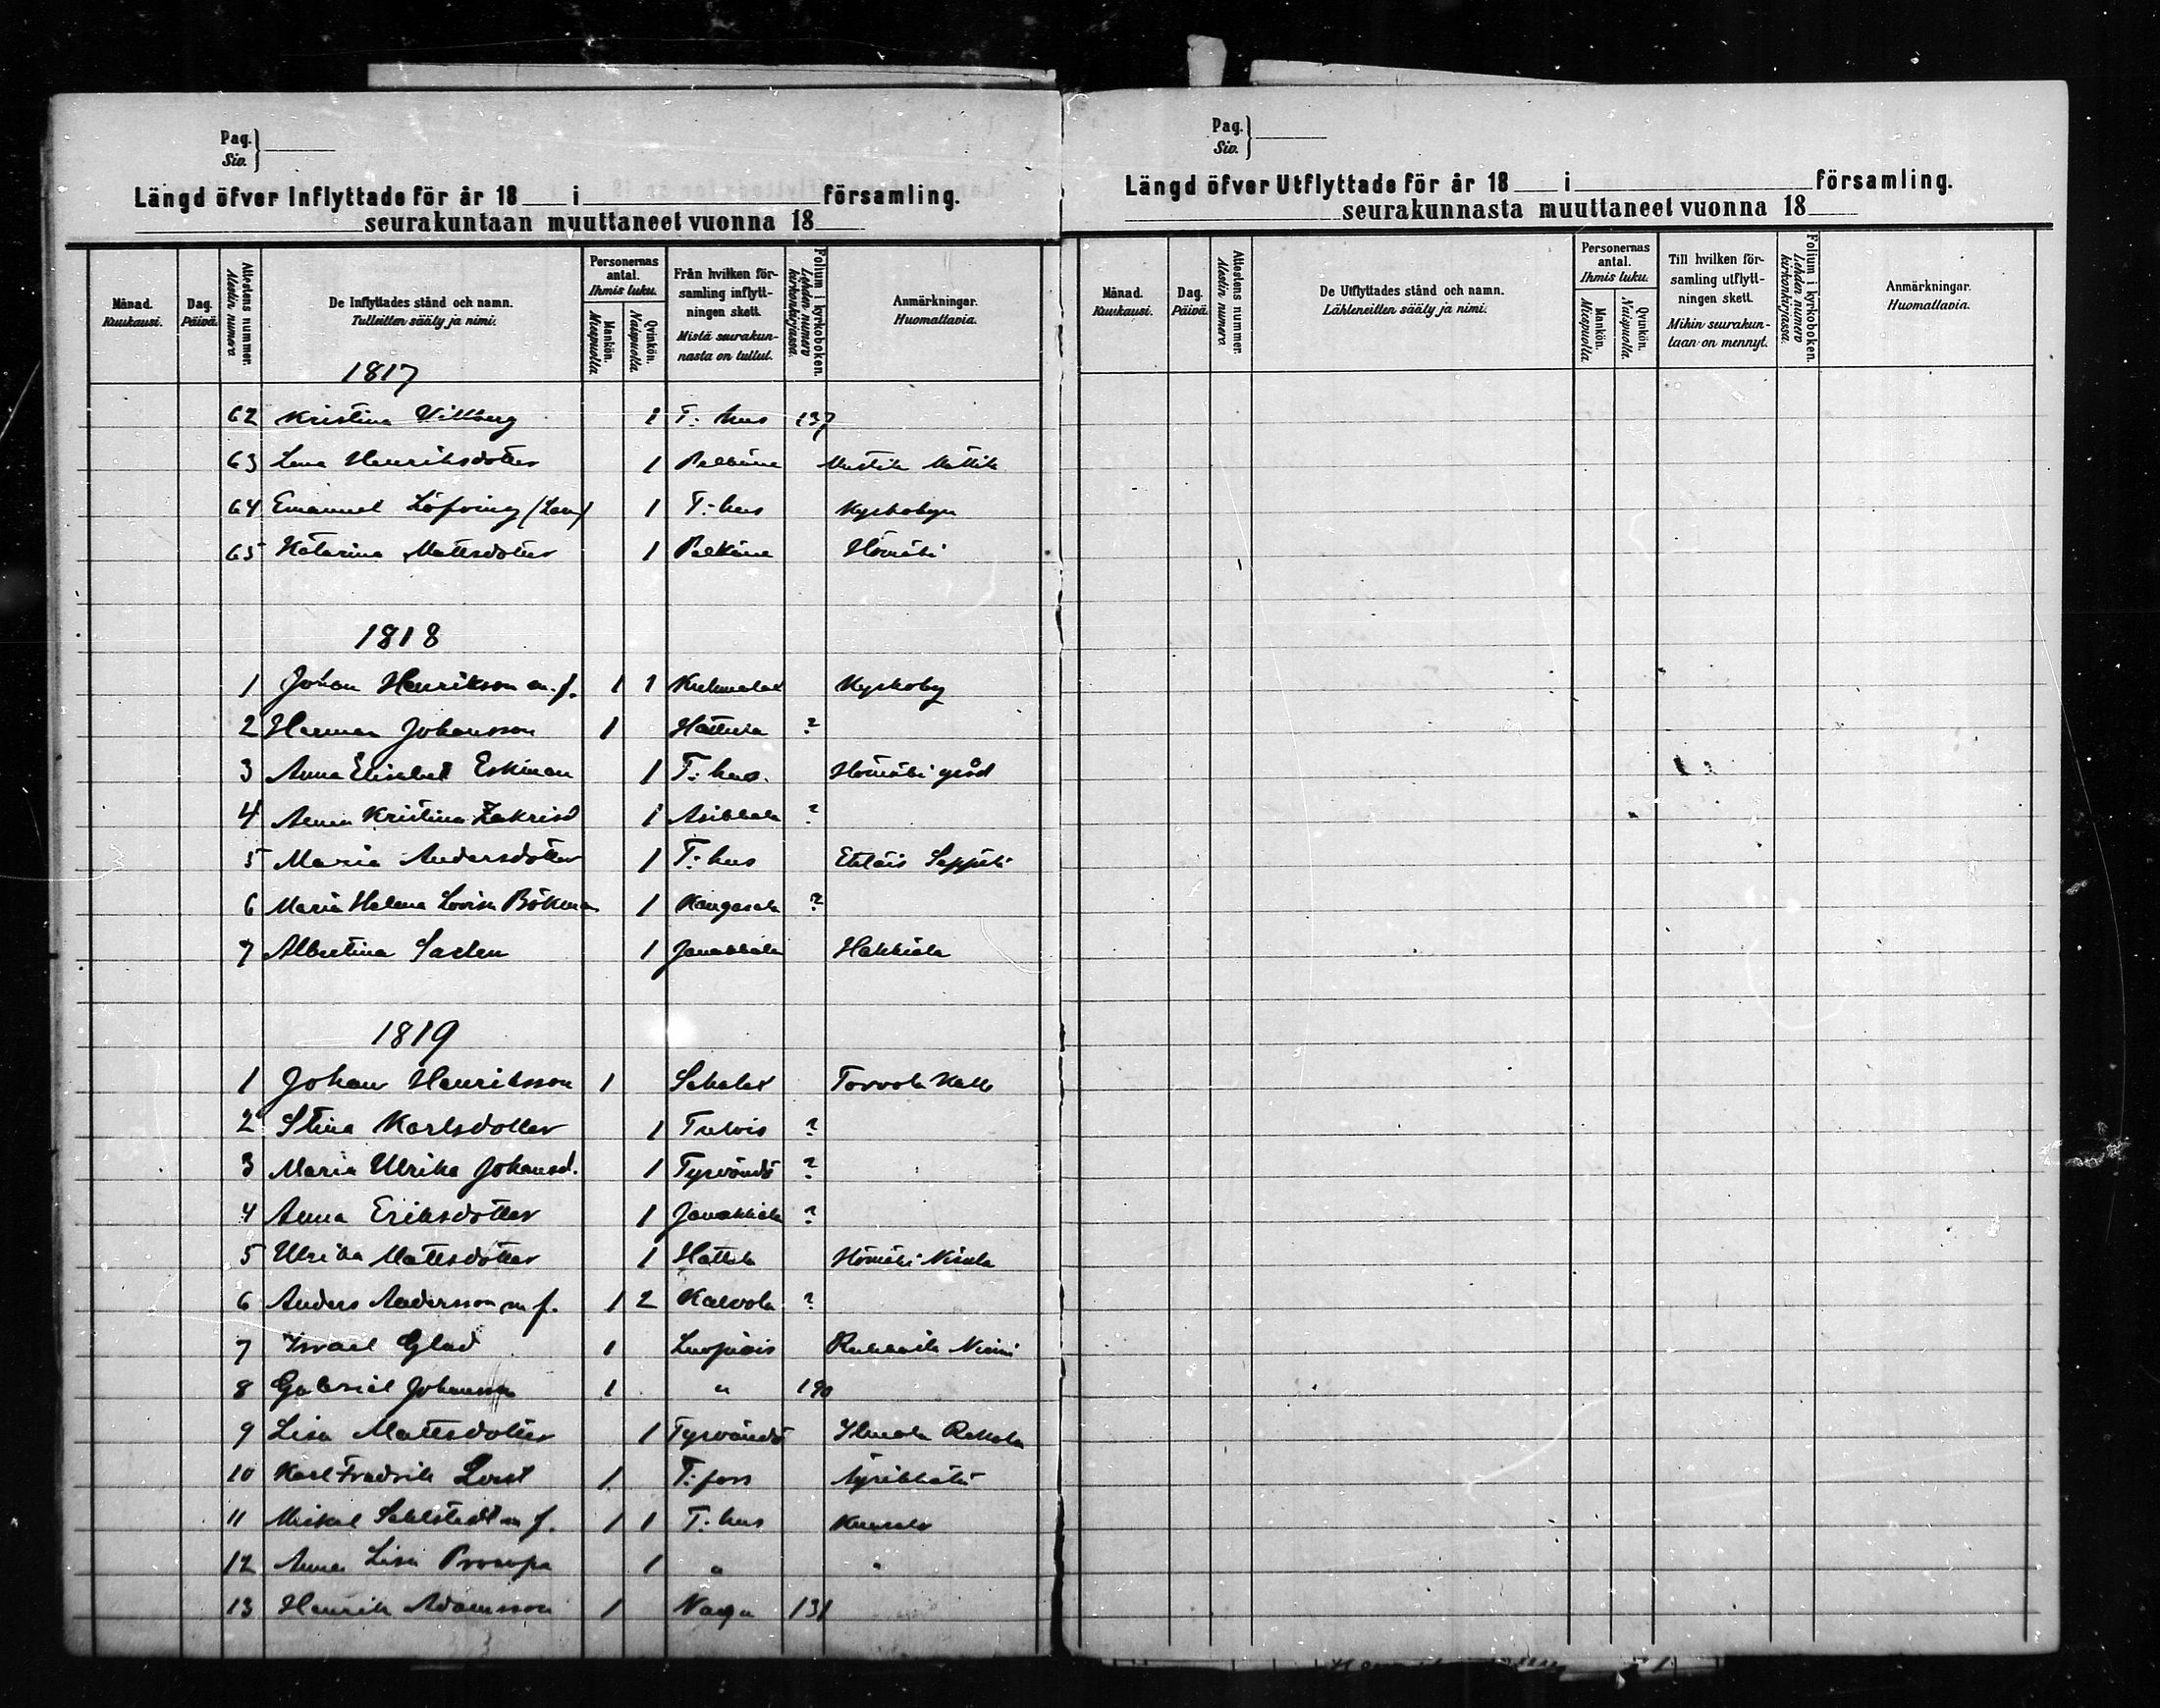 Pag.
Siv.
Längd öfver Inflyttade för år 18 i församling.
seurakuntaan muuttaneet vuonna 18
Månad.
Kuukausi.
Dag.
Päivä.
Attestens nummer.
Atestin numero.
De Inflyttades stånd och namn.
Tulleitten sääty ja nimi.
Personernas antal.
Ihmis luku.
Mankön.
Miespuolia.
Qvinkön.
Naispuolia.
Från hvilken församling inflyttningen skett.
Mistä seurakunnasta on tullut.
Folium i kyrkoboken.
Lehden numero kirkonkirjassa.
Anmärkningar.
Huomattavia.
1817
62 Kristina Villberg 1 T: hus 137
63 Lena Henriksdotter 1 Pelkäne
64 Emanuel Löfving 1 T: hus Kyrkobyn
65 Katarina Mattsdotter 1 Pelkäne Hömäki
1818
1 Johan Henrikson m. f. 1 1 Kuhmalax Kyrkoby
2 Herman Johansson 1 Hattula ?
3 Anna Elisabet Eskman 1 T: hus. Hömäki gård
4 Anna Kristina Zakrisd 1 Asikkala ?
5 Maria Andersdotter 1 T: hus Eteläis Seppälä
6 Maria Helena Lovisa Bökman 1 Kangasala ?
7 Albertina Sarlen 1 Janakkala Hakkiala
1819
1 Johan Henriksson 1 Sahalax Torvola
2 Stina Karlsdotter 1 Tulois ?
3 Maria Ulrika Johansd. 1 Tyrvändö ?
4 Anna Eriksdotter 1 Janakkala ?
5 Ulrika Mattsdotter 1 Hattula Hömäki Nisula
6 Anders Andersson m f. 1 2 Kalvola ?
7 Israel Glad 1 Luopiois Niemi
8 Gabriel Johansson 1 " 190
9 Lisa Mattsdotter 1 Tyrvändö Rekola
10 Karl Fredrik 1 T: fors
11 Mikel Sahlstedt m f. 1 1 T: hus
12 Anna Lisa 1 " "
13 Henrik Adamsson 1 Nagu 131
Pag.
Siv.
Längd öfver Utflyttade för år 18 i församling.
seurakunnasta muuttaneet vuonna 18
Månad.
Kuukausi.
Dag.
Päivä.
Attestens nummer.
Atestin numero.
De Utflyttades stånd och namn.
Lähteneitten sääty ja nimi.
Personernas antal.
Ihmis luku.
Mankön.
Miespuolia.
Qvinkön.
Naispuolia.
Till hvilken församling utflyttningen skett.
Mihin seurakuntaan on mennyt.
Folium i kyrkoboken.
Lehden numero kirkonkirjassa.
Anmärkningar.
Huomattavia.